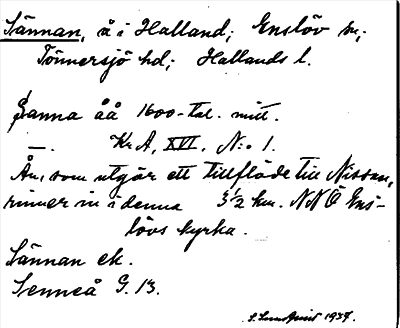 Sännan, å i Halland; Enslöv sn;
Tönnersjö hd; Hallands l.
Sanna åå 1600-tal. mitt.
—. Kr A, XVI, N:o 1.
Ån, som utgör ett tillflöde till Nissan,
rinner in i denna 3½ km. NNÖ Ens-
lövs kyrka.
Sännan ek.
Senneå G. 13.
S. Lundqvist 1937.